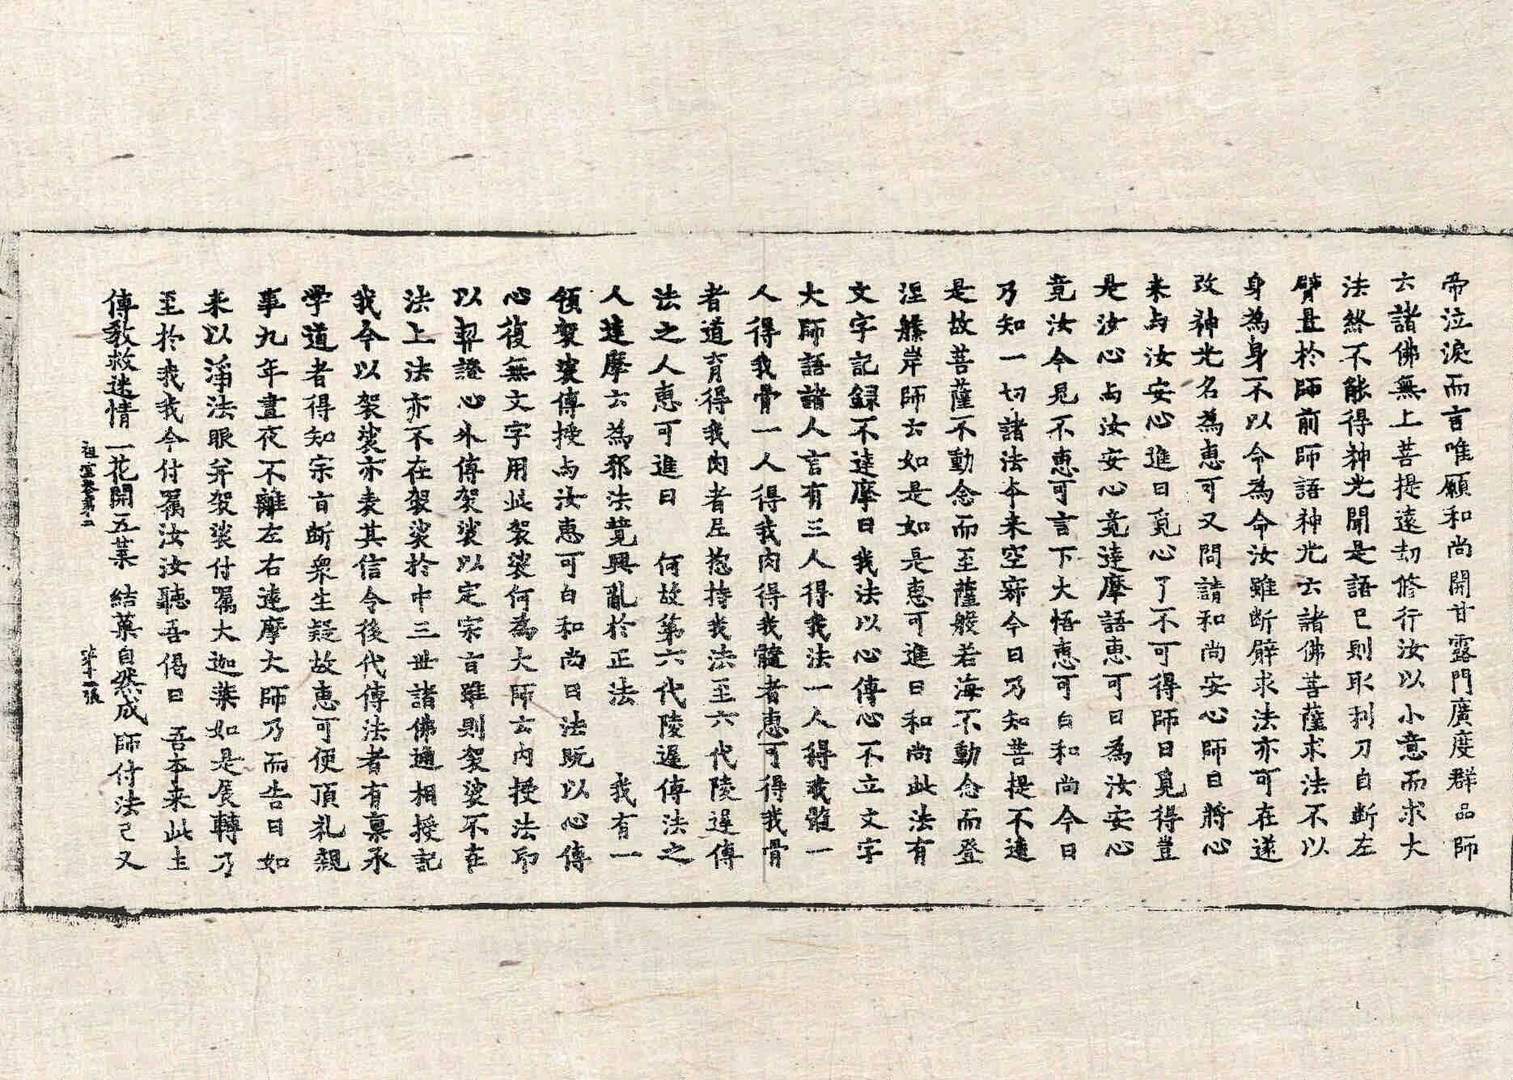 帝泣淚而言唯願和尚開甘露門廣度群品師
云諸佛無上菩提遠劫修行汝以小意而求大
法終不能得神光聞是語已則取利刀自斷左
臂置於師前師語神光云諸佛菩薩求法不以
身為身不以命為命汝雖斷臂求法亦可在遂
改神光名為惠可又問請和尚安心師曰將心
来与汝安心進曰覓心了不可得師曰覓得豈
是汝心与汝安心竟達摩語惠可曰為汝安心
竟汝今見不惠可言下大悟惠可白和尚今日
乃知一切諸法本来空寂今日乃知菩提不遠
是故菩薩不動念而至薩般若海不動念而登
涅槃岸師云如是如是惠可進曰和尚此法有
文字記録不達摩曰我法以心傳心不立文字
大師語諸人言有三人得我法一人得我髓一
人得我骨一人得我肉得我髓者惠可得我骨
者道育得我肉者尼惣持我法至六代陵遲傳
法之人惠可進曰 何故第六代陵遲傳法之
人達摩云為邪法競興亂於正法 我有一
領袈裟傳授与汝惠可白和尚曰法既以心傳
心復無文字用此袈裟何為大師云内授法印
以契證心外傳袈裟以定宗旨雖則袈裟不在
法上法亦不在袈裟於中三世諸佛遞相授記
我今以袈裟亦表其信令後代傳法者有稟承
學道者得知宗旨断衆生疑故惠可便頂礼親
事九年晝夜不離左右達摩大師乃而告曰如
来以淨法眼并袈裟付囑大迦葉如是展轉乃
至於我我今付囑汝汝聽吾偈曰 吾本来此土
傳教救迷情 一花開五葉 結菓自然成 師付法已又
祖堂卷第二 第十一張